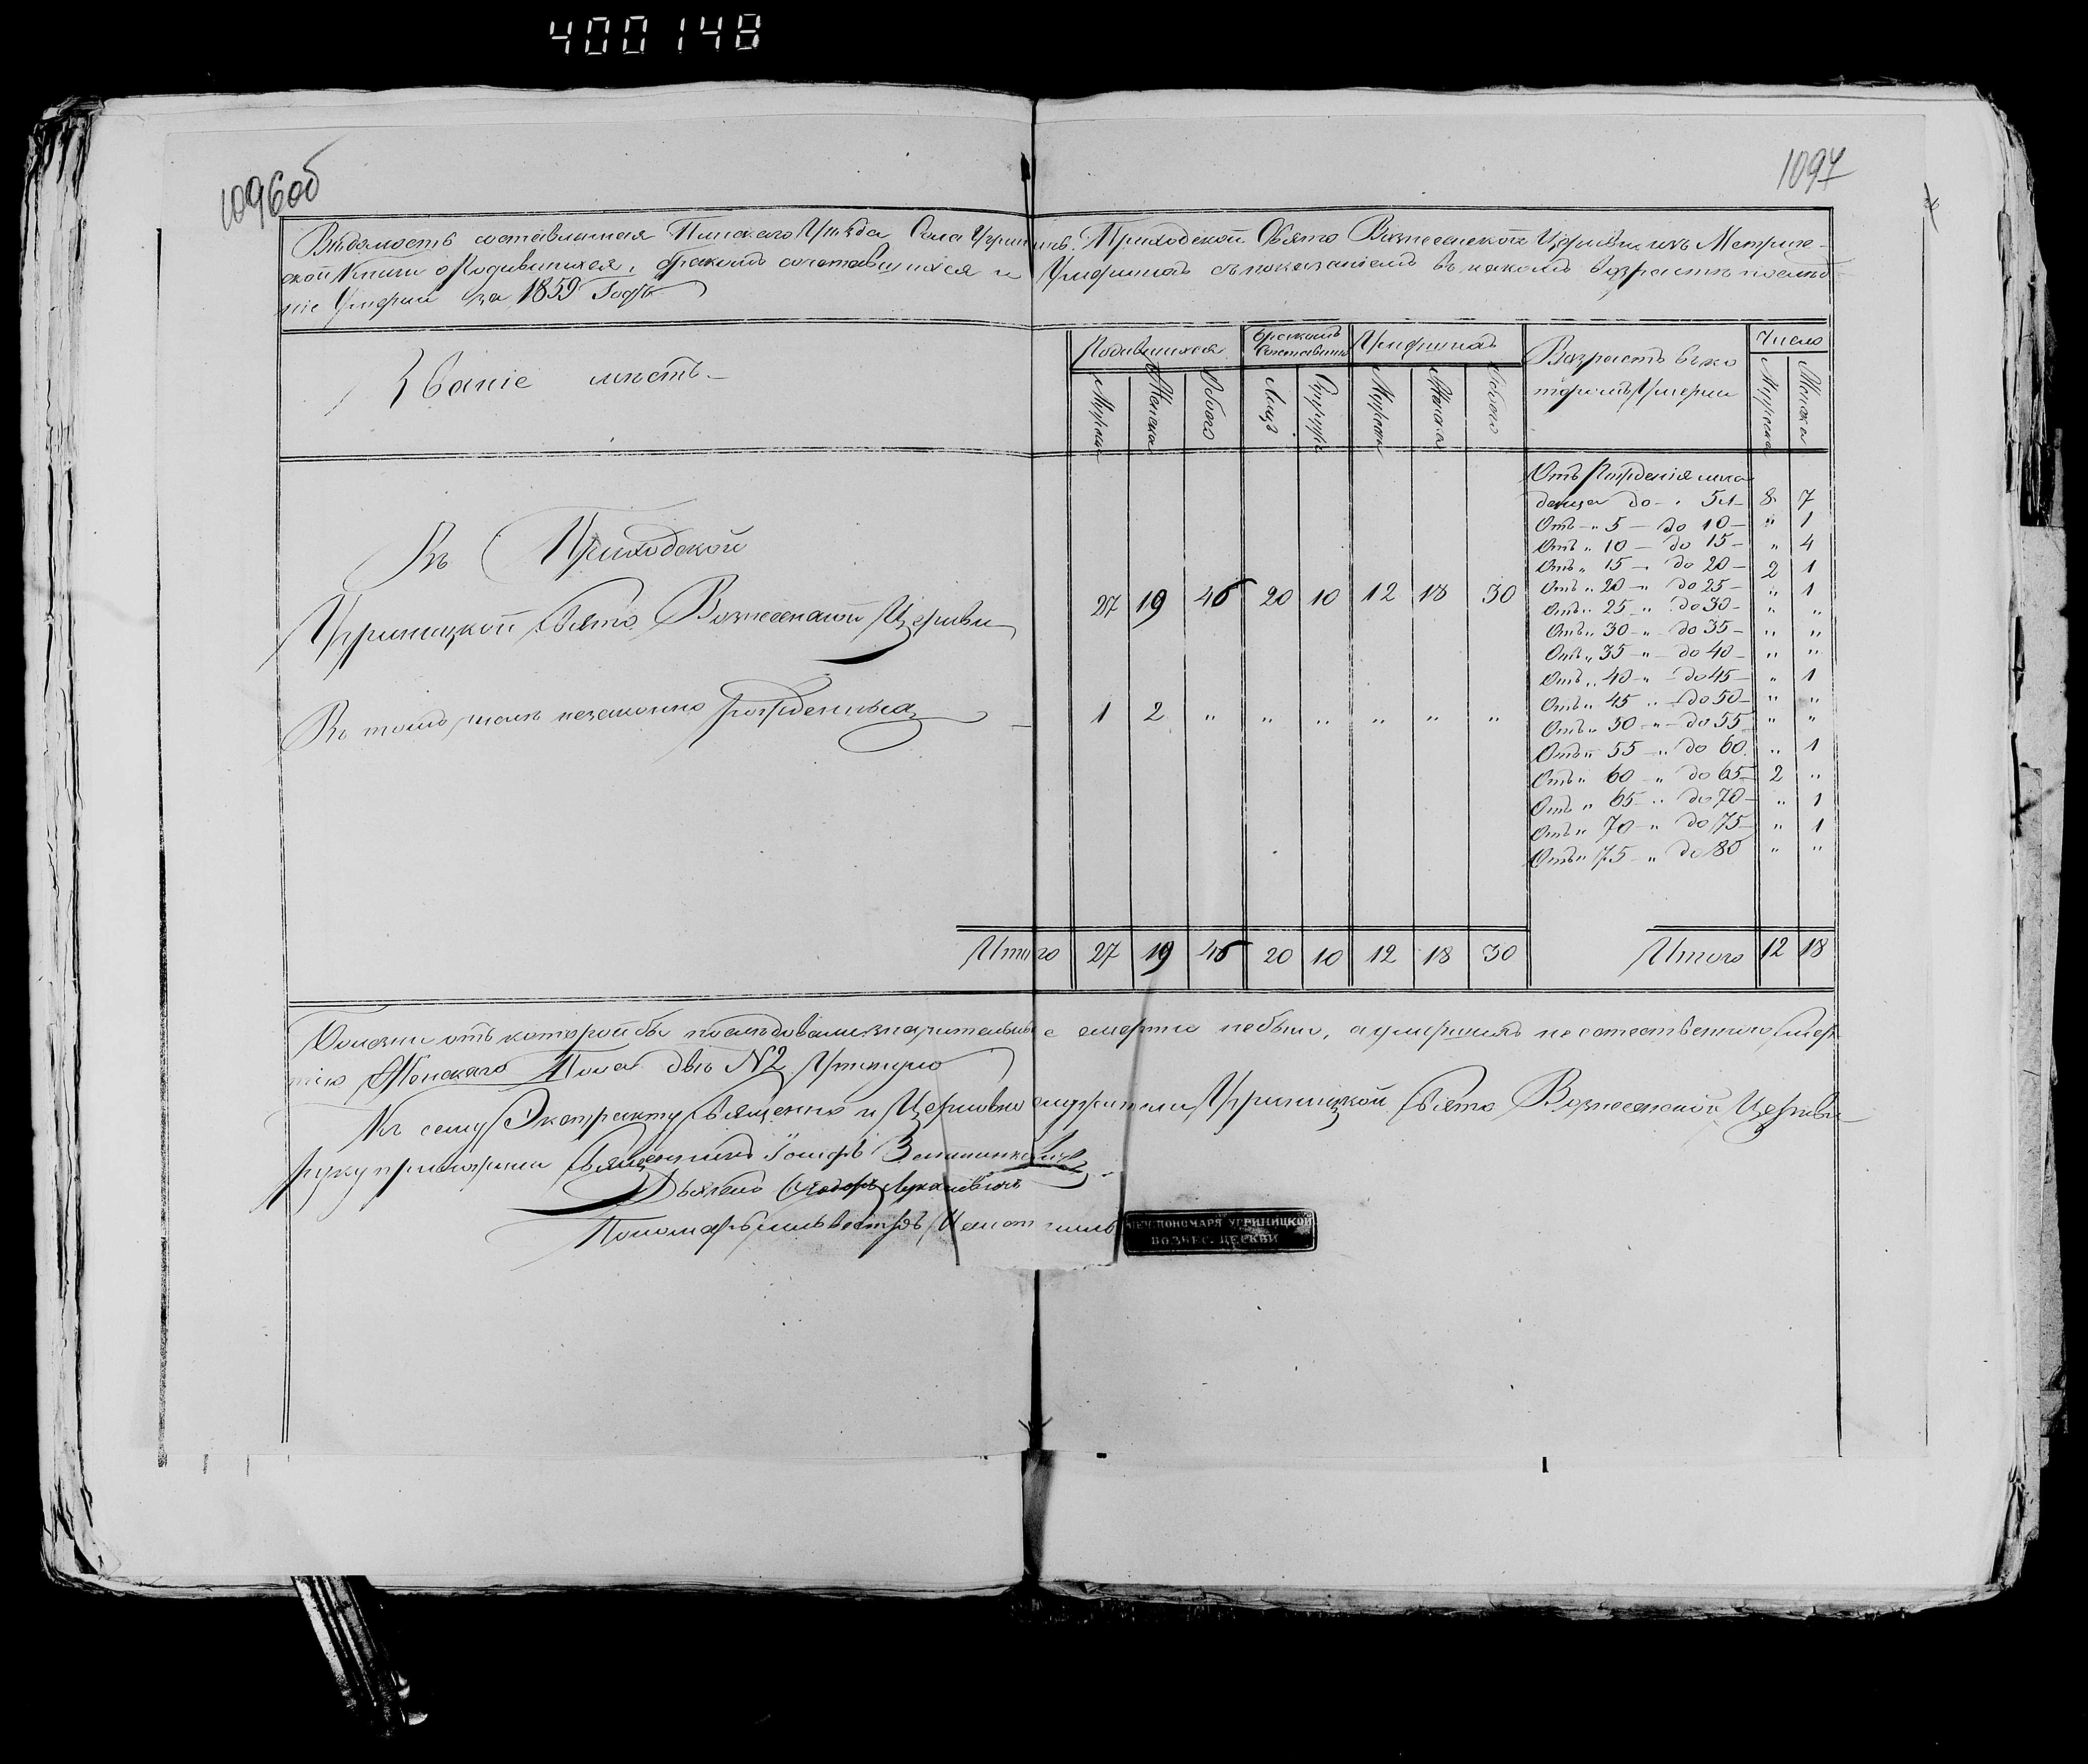 400148
1096об
1097
Вѣдомость составленная Пинскаго Уѣзда Села Угриничь Приходской Свято Вознесенской Церкви, изъ Метриче-
ской Книги о Родившихся, бракомъ сочетавшихся и Умершихъ съ показаніемъ въ какомъ возрастѣ послѣд-
ніе Умерли за 1859 Годъ
Званіе мѣстъ
Родившихся
бракомъ Сочетавших
Умершихъ
Возрастъ въ ко
торомъ Умерли
Число
Мужска Женска Обоего Лицъ Супруж Мужска Женска Обоего Мужска Женска
Отъ Рожденія мла
денца до 5л 8 7
Отъ 5 до 10 " 1
Отъ " 10 до 15 " 4
Отъ " 15 до 20 2 1
Отъ " 20 " до 25 " 1
Отъ " 25 " до 30 " "
Отъ " 30 " до 35 " "
Отъ " 35 " до 40 " "
Отъ " 40 " до 45 " 1
Отъ " 45 " до 50 " "
Отъ " 50 " до 55 " "
Отъ " 55 " до 60 " 1
Отъ " 60 " до 65 2 "
Отъ " 65 " до 70 " 1
Отъ " 70 " до 75 " 1
Отъ " 75 " до 80 " "
Въ Приходской
Угриницкой Свято Вознесенской Церкви 27 19 46 20 10 12 18 30
Въ томъ числѣ незаконно рожденныхъ 1 2 " " " " " "
Итого 27 19 46 20 10 12 18 30 Итого 12 12 18
Болезни отъ которой бы послѣдовали значительные смерти небыло, а умершихъ не естественною смер
тію Женскаго Пола двѣ N2
Къ сему Экстракту Священно и Церковно служители Угриницкой Свято Вознесенской Церкви
руку приложили Священникъ Іосифъ
Дьячекъ Феодоръ
Пономарь
ПЕЧ. ПОНОМАРЯ УГРИНИЦКОЙ
ВОЗНЕС. ЦЕРКВИ